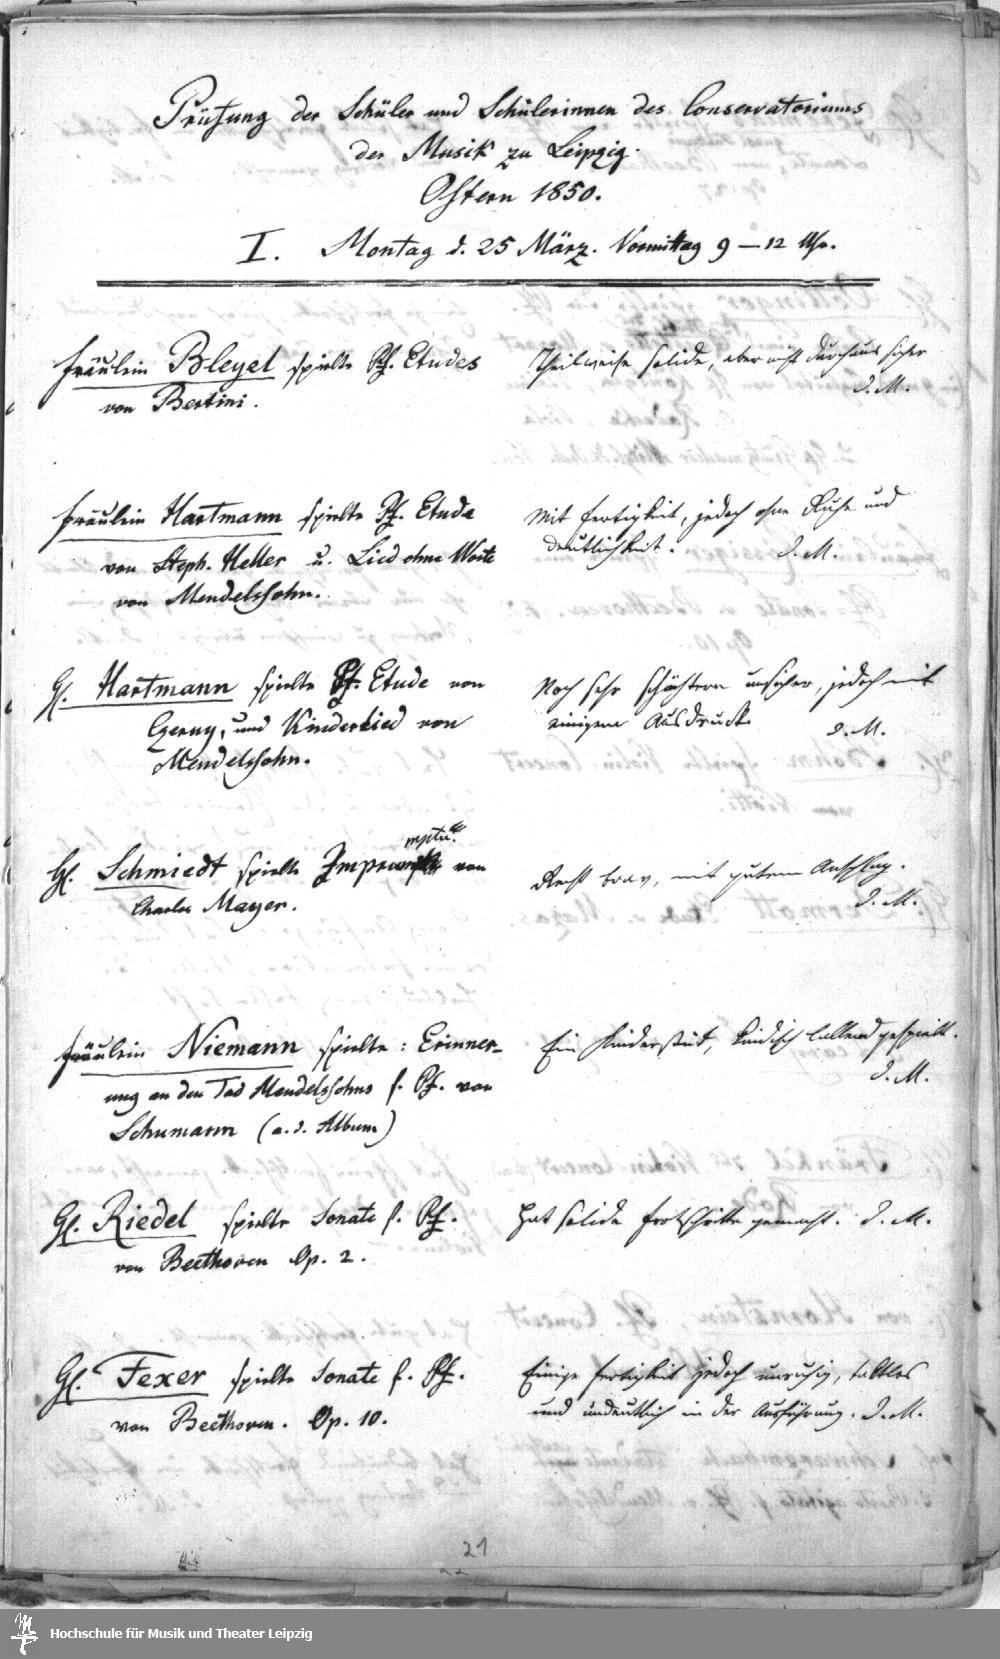 Prüfung der Schüler und Schülerinnen des Conservatoriums
der Musik zu Leipzig.
Ostern 1850.
I. Montag d. 25 März. Vormittag 9 – 12 Uhr.
Fräulein Bleyel spielte Pf. Etudes
von Bertini.
Theilweise solide, aber nicht durchaus sicher
D. M.
Fräulein Hartmann spielte Pf. Etude
von Steph. Heller u. Lied ohne Worte
von Mendelssohn.
Mit Fertigkeit, jedoch ohne Ruhe und
Deutlichkeit. D. M.
H. Hartmann spielte Pf. Etude von
Czerny, und Kinderlied von
Mendelssohn.
Noch sehr schüchtern unsicher, jedoch mit
einigem Ausdruck.
D. M.
H. Schmiedt spielte Impromptu von
Charles Mayer.
Recht brav, mit gutem Anschlag.
D. M.
Fräulein Niemann spielte: Erinner-
ung an den Tod Mendelssohns f. Pf. von
Schumann (a. d. Album)
Ein Kinderstück, kindisch lallend gespielt.
D. M.
H. Riedel spielte Sonate f. Pf.
von Beethoven Op. 2.
Hat solide Fortschritte gemacht. D. M.
H. Fexer spielte Sonate f. Pf.
von Beethoven. Op. 10.
Einige Fertigkeit jedoch unruhig, taktlos
und undeutlich in der Ausführung. D. M.
21
Hochschule für Musik und Theater Leipzig